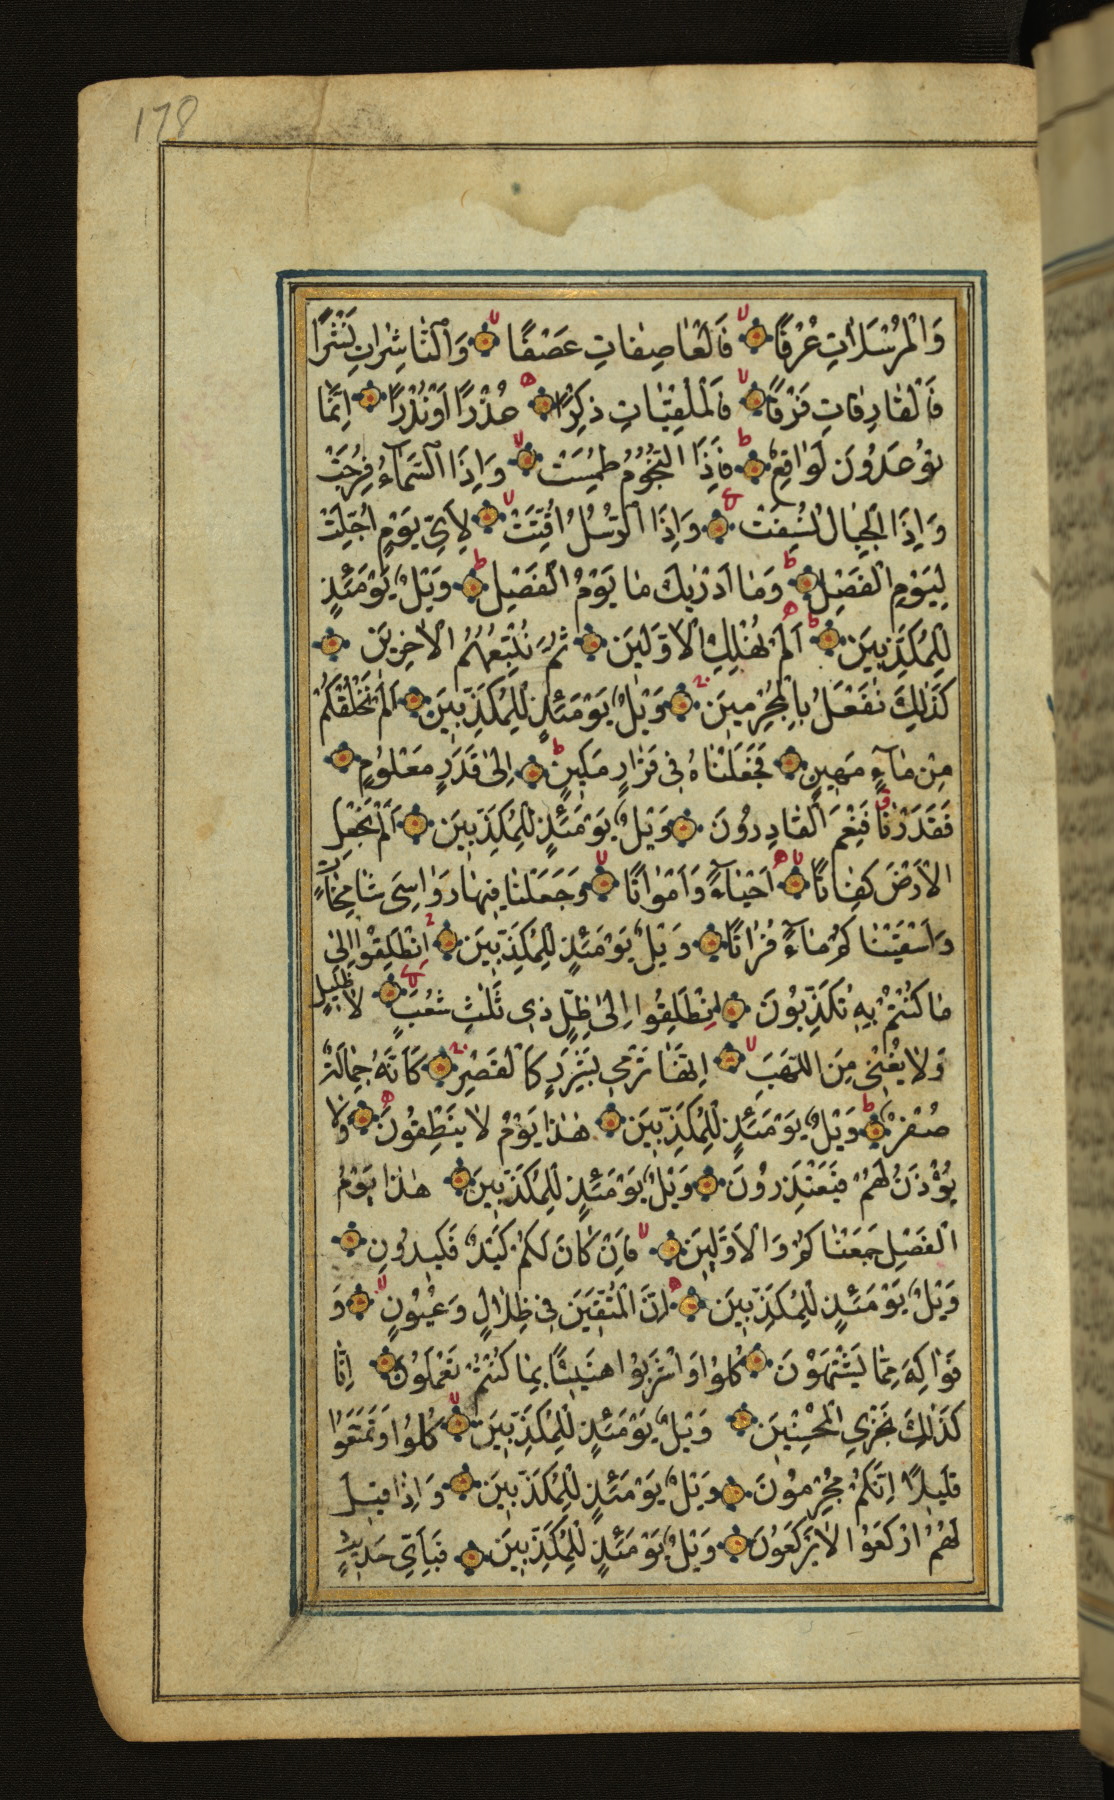 178
وَالْمُرْسَلَاتِ عُرْفًا فَالْعَاصِفَاتِ عَصْفًا وَالنَّاشِرَاتِ نَشْرًا
فَالْفَارِقَاتِ فَرْقًا فَالْمُلْقِيَاتِ ذِكْرًا عُذْرًا أَوْ نُذْرًا اِنَّمَا
تُوعَدُونَ لَوَاقِعٌ فَإِذَا النُّجُومُ طُمِسَتْ وَإِذَا السَّمَاءُ فُرِجَتْ
وَإِذَا الْجِبَالُ نُسِفَتْ وَإِذَا الرُّسُلُ اُقِّتَتْ لِأَيِّ يَوْمٍ اُجِّلَتْ
لِيَوْمِ الْفَصْلِ وَمَا اَدْرٰيكَ مَا يَوْمُ الْفَصْلِ وَيْلٌ يَوْمَئِذٍ
لِلْمُكَذِّبِينَ اَلَمْ نُهْلِكِ الْاَوَّلِينَ ثُمَّ نُتْبِعُهُمُ الْاٰخِرِينَ
كَذٰلِكَ نَفْعَلُ بِالْمُجْرِمِينَ وَيْلٌ يَوْمَئِذٍ لِلْمُكَذِّبِينَ اَلَمْ نَخْلُقْكُمْ
مِنْ مَاءٍ مَهِينٍ فَجَعَلْنَاهُ فِي قَرَارٍ مَكِينٍ اِلٰى قَدَرٍ مَعْلُومٍ
فَقَدَرْنَا فَنِعْمَ الْقَادِرُونَ وَيْلٌ يَوْمَئِذٍ لِلْمُكَذِّبِينَ اَلَمْ نَجْعَلِ
الْاَرْضَ كِفَاتًا اَحْيَاءً وَاَمْوَاتًا وَجَعَلْنَا فِيهَا رَوَاسِيَ شَامِخَاتٍ
وَاَسْقَيْنَاكُمْ مَاءً فُرَاتًا وَيْلٌ يَوْمَئِذٍ لِلْمُكَذِّبِينَ اِنْطَلِقُوا اِلٰى
مَا كُنْتُمْ بِهِ تُكَذِّبُونَ اِنْطَلِقُوا اِلٰى ظِلٍّ ذِي ثَلٰثِ شُعَبٍ لَا ظَلِيلٍ
وَلَا يُغْنِي مِنَ اللَّهَبِ اِنَّهَا تَرْمِي بِشَرَرٍ كَالْقَصْرِ كَاَنَّهُ جِمَالَتٌ
صُفْرٌ وَيْلٌ يَوْمَئِذٍ لِلْمُكَذِّبِينَ هٰذَا يَوْمُ لَا يَنْطِقُونَ وَلَا
يُؤْذَنُ لَهُمْ فَيَعْتَذِرُونَ وَيْلٌ يَوْمَئِذٍ لِلْمُكَذِّبِينَ هٰذَا يَوْمُ
الْفَصْلِ جَمَعْنَاكُمْ وَالْاَوَّلِينَ فَاِنْ كَانَ لَكُمْ كَيْدٌ فَكِيدُونِ
وَيْلٌ يَوْمَئِذٍ لِلْمُكَذِّبِينَ اِنَّ الْمُتَّقِينَ فِي ظِلَالٍ وَعُيُونٍ وَ
فَوَاكِهَ مِمَّا يَشْتَهُونَ كُلُوا وَاشْرَبُوا هَنِيئًا بِمَا كُنْتُمْ تَعْمَلُونَ اِنَّا
كَذٰلِكَ نَجْزِي الْمُحْسِنِينَ وَيْلٌ يَوْمَئِذٍ لِلْمُكَذِّبِينَ كُلُوا وَتَمَتَّعُوا
قَلِيلًا اِنَّكُمْ مُجْرِمُونَ وَيْلٌ يَوْمَئِذٍ لِلْمُكَذِّبِينَ وَاِذَا قِيلَ
لَهُمُ ارْكَعُوا لَا يَرْكَعُونَ وَيْلٌ يَوْمَئِذٍ لِلْمُكَذِّبِينَ فَبِاَيِّ حَدِيثٍ